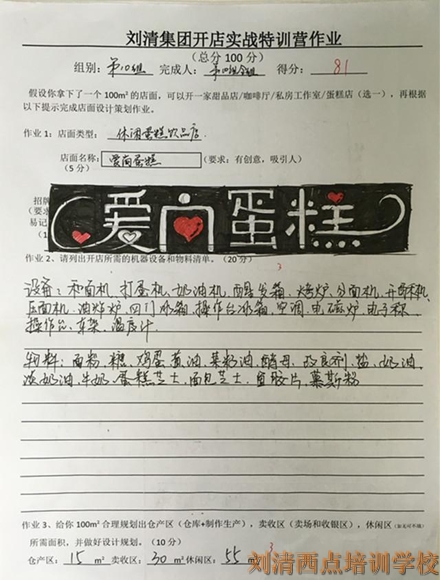 刘清集团开店实战特训营作业
(总分 100 分)
组别: 第10组 完成人: 第10组全组 得分: 81
假设你拿下了一个 100m² 的店面，可以开一家甜品店/咖啡厅/私房工作室/蛋糕店（选一），再根
据以下提示完成店面设计策划作业。
作业 1: 店面类型: 休闲蛋糕饮品店
店面名称: 爱尚蛋糕 (要求: 有创意，吸引人)
(5 分)
招牌
(要求
易记
爱尚蛋糕
作业 2、请列出开店所需的机器设备和物料清单。(20 分)
3
设备: 和面机、打蛋机、奶油机、醒发箱、烤炉、分面机、开酥机、
压面机、油炸炉、四门冰箱、操作台冰箱、空调、电磁炉、电子称、
操作台、车架、温度计.
物料: 面粉、糖、鸡蛋、黄油、菜籽油、酵母、改良剂、盐、奶油、
淡奶油、牛奶、蛋糕芝士、面包芝士、鱼胶片、慕斯粉
作业 3、给你 100m² 合理规划出仓产区（仓库+制作生产），卖收区（卖场和收银区），休闲区
所需面积，并做好设计规划。(10 分)
仓产区: 15 m² 卖收区: 30 m² 休闲区: 55 m² 3
刘清西点培训学校